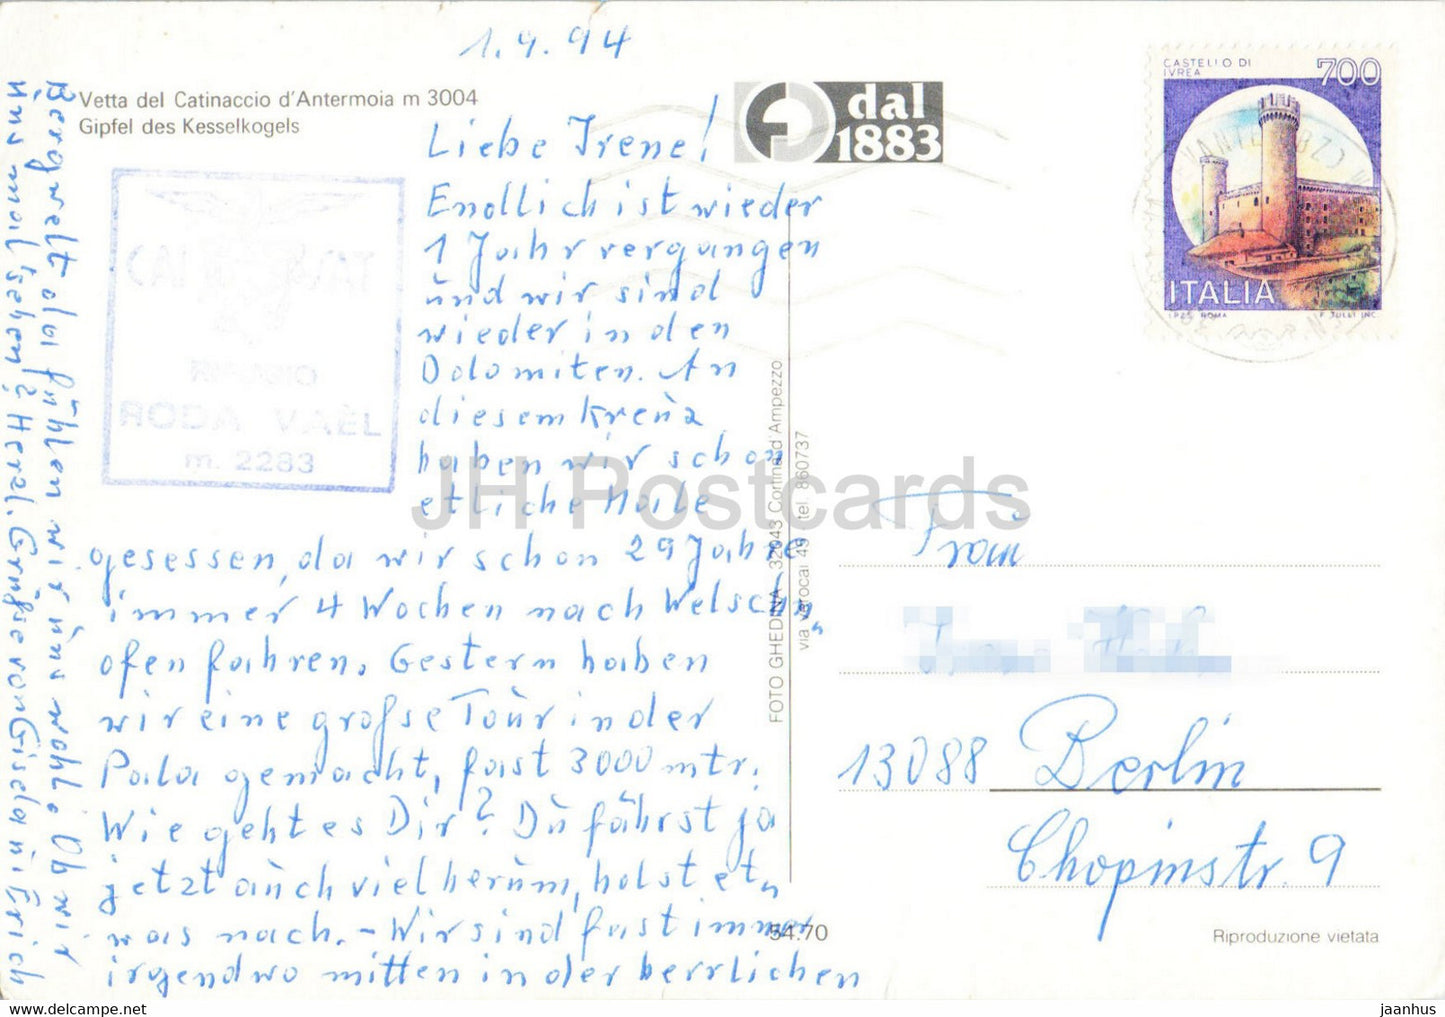 1.9.94
Vetta del Catinaccio d'Antermoia m 3004
Gipfel des Kesselkogels
dal
1883
CASTELLO DI
IVREA
700
ITALIA
I.P.Z.S. ROMA
F. TULLI INC.
RIFUGIO
RODA VAÈL
m. 2283
Liebe Irene!
Endlich ist wieder
1 Jahr vergangen
und wir sind
wieder in den
Dolomiten. An
diesem Kreuz
haben wir schon
etliche Male
gesessen, da wir schon 29 Jahre
immer 4 Wochen nach Welschn
ofen fahren. Gestern haben
wir eine große Tour in der
Pala gemacht, fast 3000 mtr.
Wie geht es Dir? Du fährst ja
jetzt auch viel herum, holst et„
was nach. - Wir sind fast immer
irgendwo mitten in der herrlichen
Bergwelt da fühlen wir uns wohl. Ob wir
uns mal sehen? Herzl. Grüße von Gisela u. Erich
FOTO GHEDINA - 32043 Cortina d'Ampezzo
via Verocai 49 - tel. 860737
54.70
JH Postcards
Frau
13088 Berlin
Chopinstr. 9
Riproduzione vietata
www.delcampe.net
jaanhus